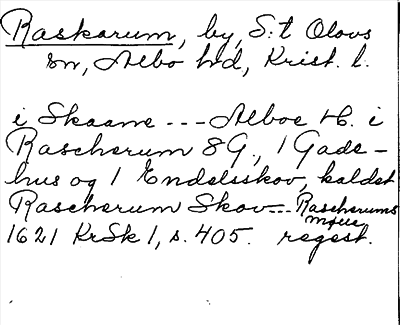 Raskarum, by, S:t Olovs
sn, Albo hd, Krist. l.
i Skaane --- Alboe H. i
Rascherum 8 G., 1 Gade-
hus og 1 Endelsskov, kaldet
Rascherum Skov --- Rascherums
mølle
1621 KrSk 1, s. 405. regest.